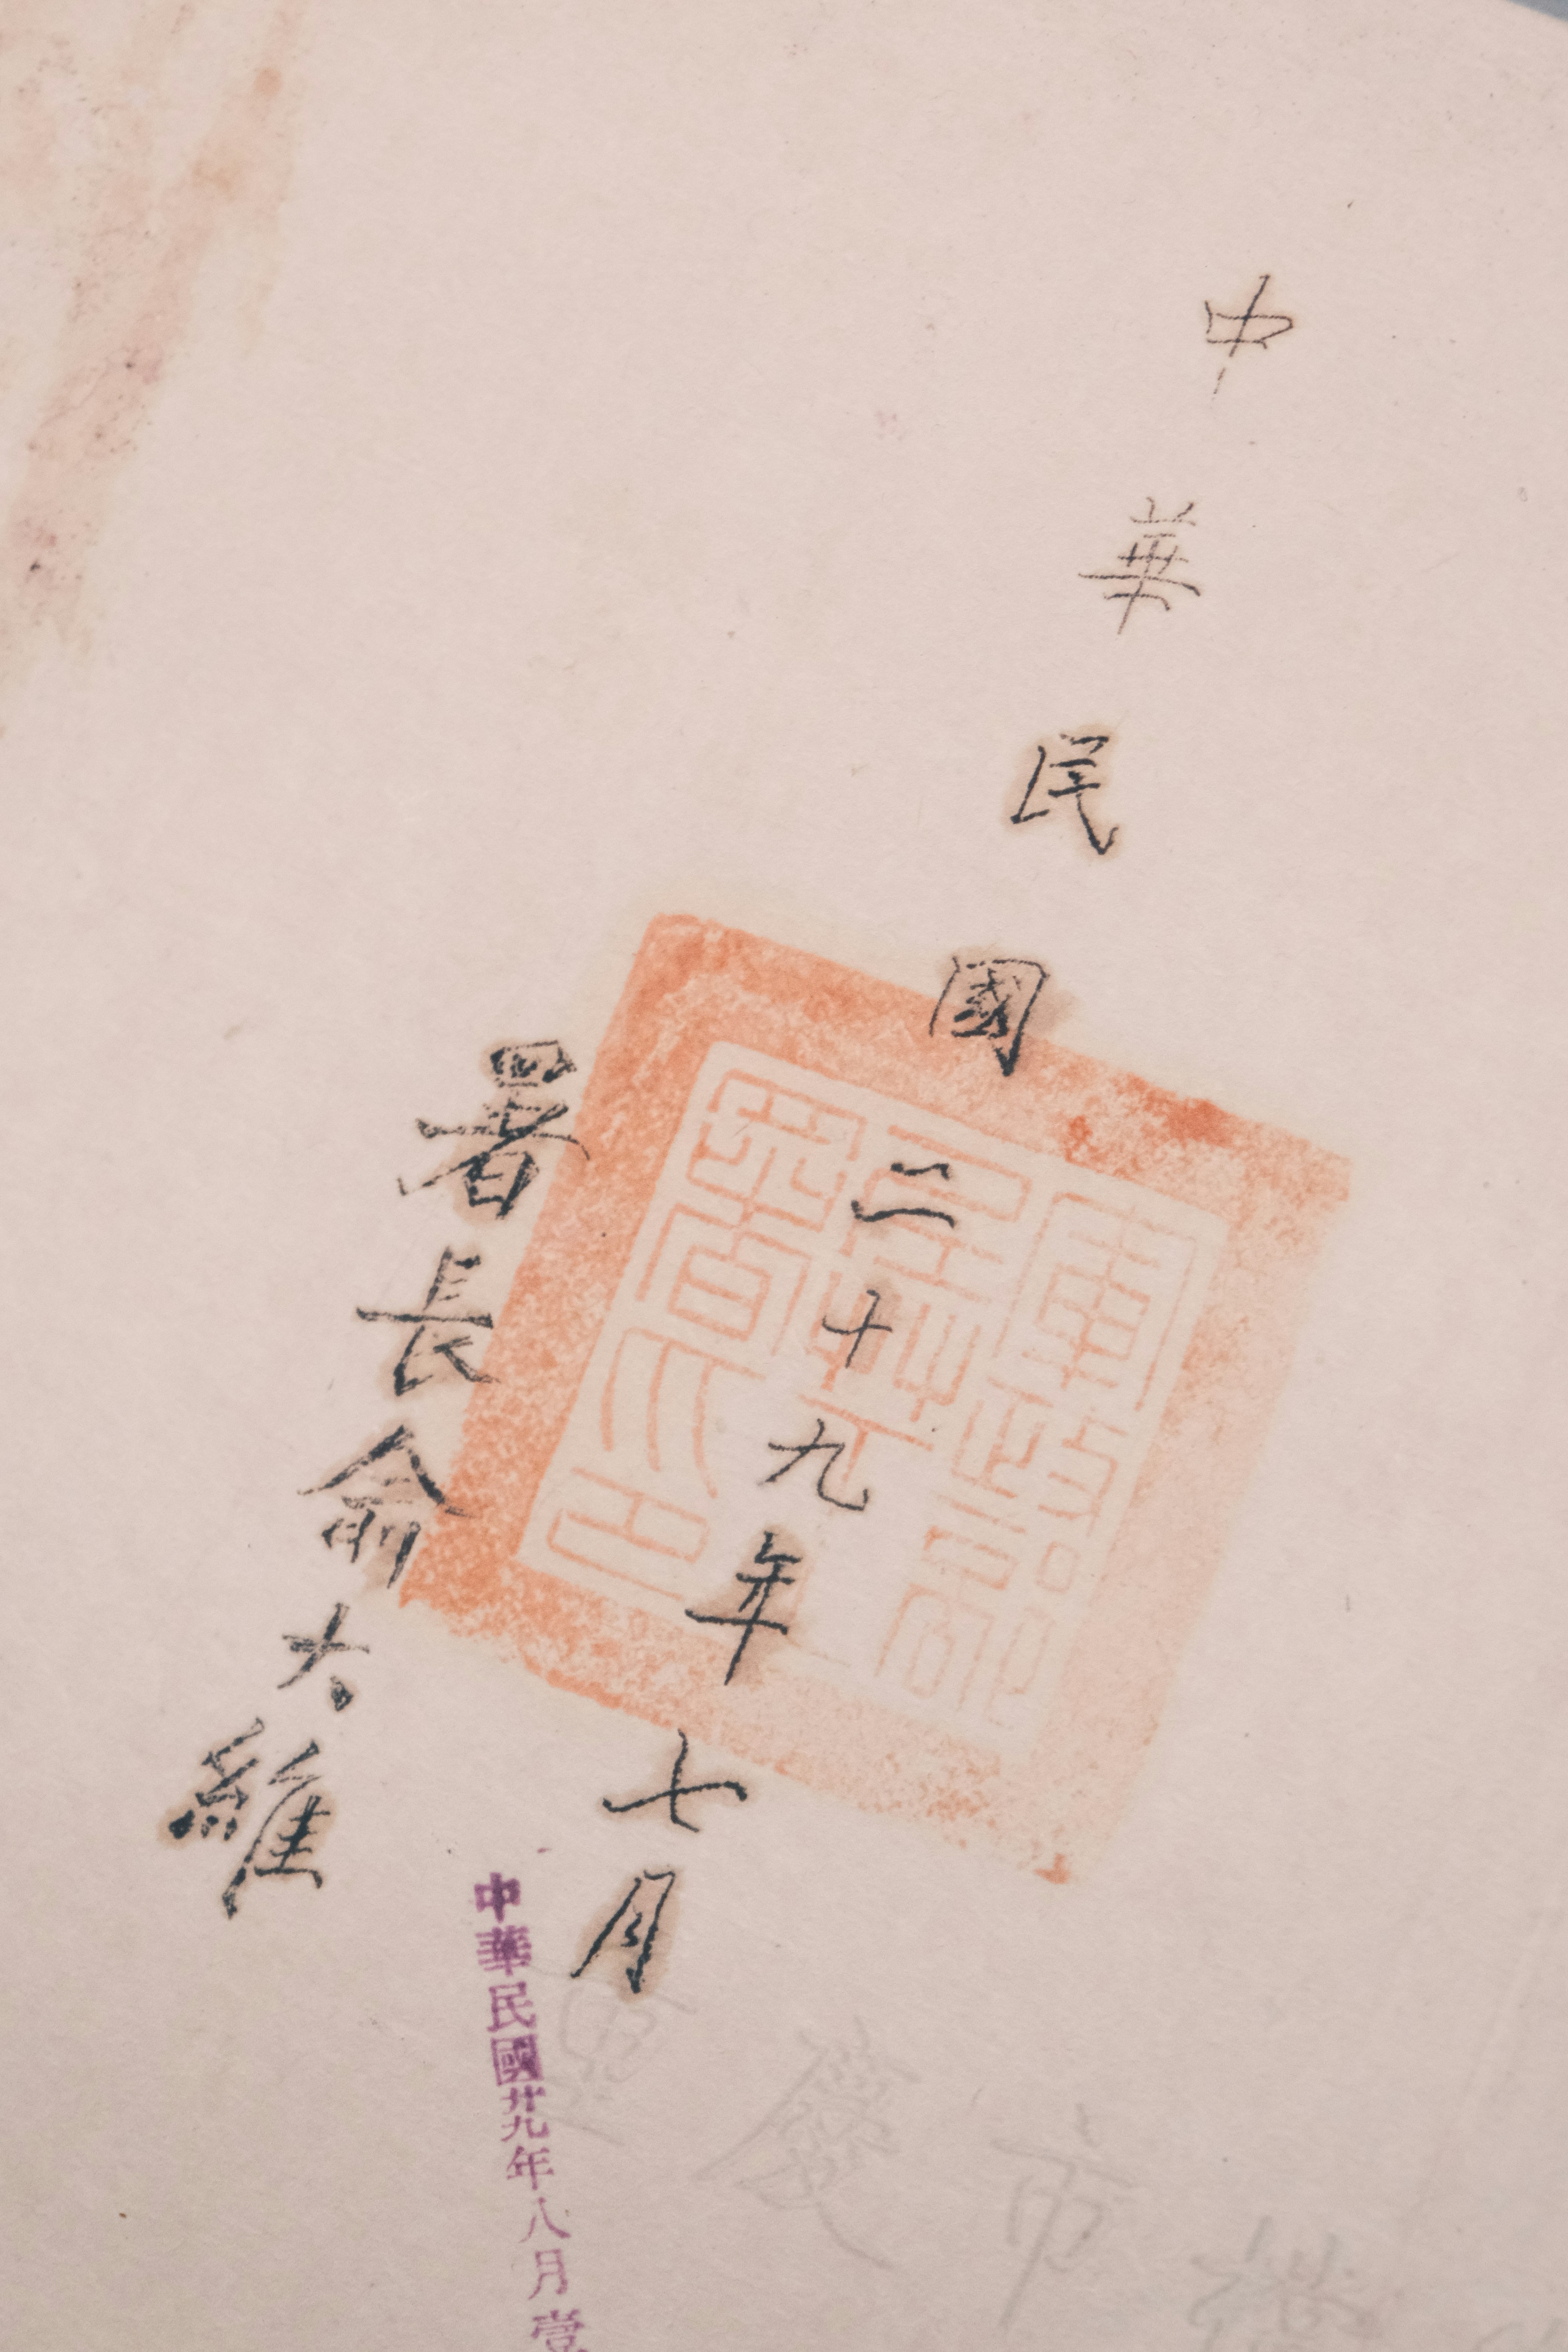 中華民國二十九年七月
署長俞大維
中華民國廿九年八月壹